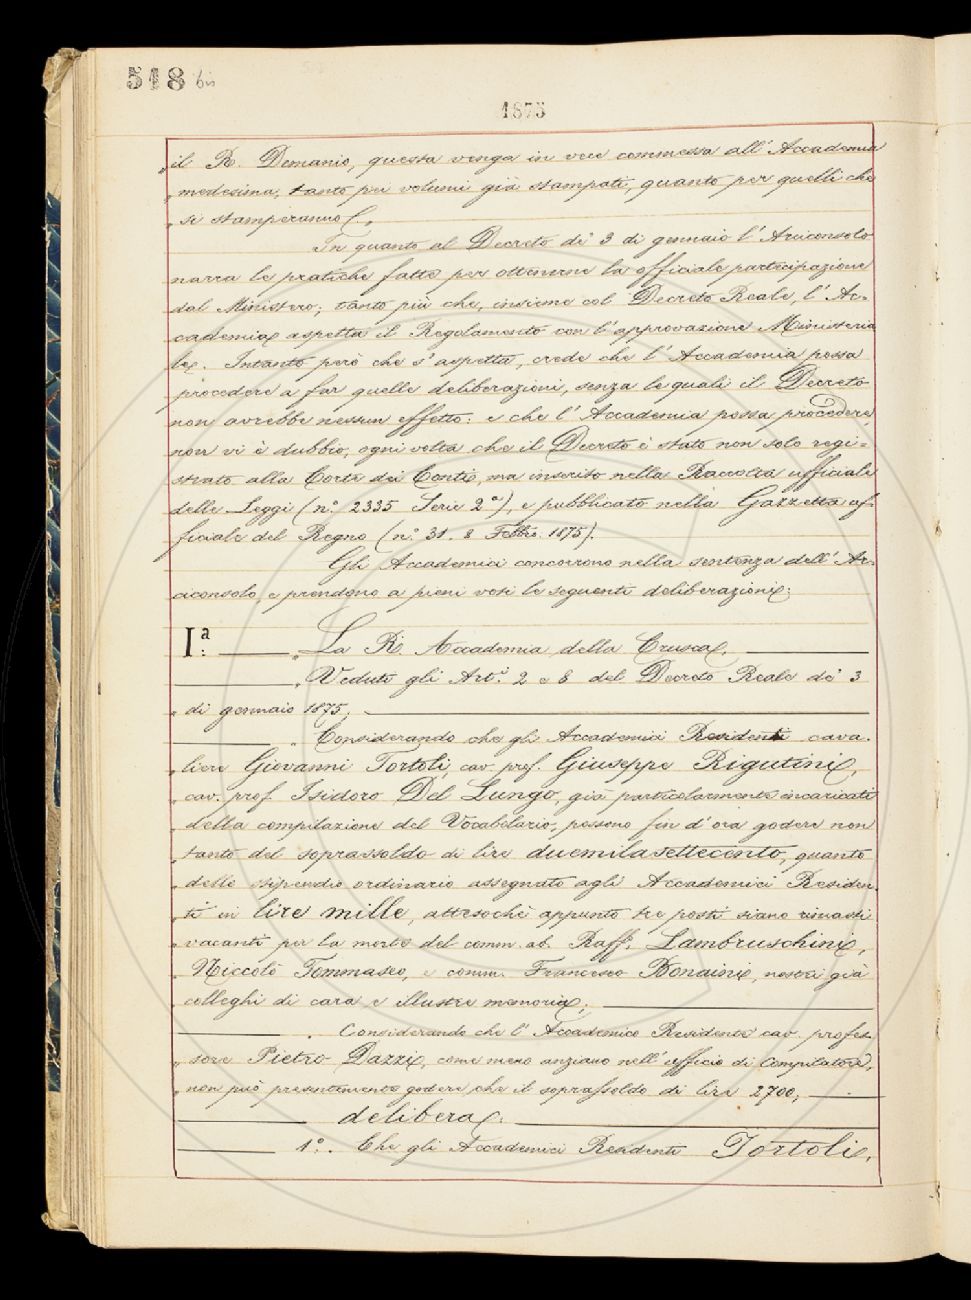 518 bis
1875
„ il R. Demanio, questa venga in vece commessa all' Accademia
„ medesima, tanto pei volumi già stampati, quanto per quelli che
„ si stamperanno „
In quanto al Decreto de' 3 di gennaio l' Arciconsolo
narra le pratiche fatte per ottenerne la officiale partecipazione
dal Ministero; tanto più che, insieme col Decreto Reale, l' Ac=
cademia aspetta il Regolamento con l' approvazione Ministeria
le. Intanto però che s' aspetta, crede che l' Accademia possa
procedere a far quelle deliberazioni, senza le quali il Decreto
non avrebbe nessun effetto: e che l' Accademia possa procedere
non vi è dubbio, ogni volta che il Decreto è stato non solo regi=
strato alla Corte dei Conti, ma inserito nella Raccolta ufficiale
delle Leggi (n.° 2335 Serie 2ª), e pubblicato nella Gazzetta uf
ficiale del Regno (n.° 31. 8 Febbr. 1875).
Gli Accademici concorrono nella sentenza dell' Ar-
ciconsolo, e prendono a pieni voti le seguenti deliberazioni:
Iª: „ La R. Accademia della Crusca,
„ Veduti gli Art.i 2 e 8 del Decreto Reale de' 3
„ di gennaio 1875;
„ Considerando che gli Accademici Residenti cava-
„ liere Giovanni Tortoli, cav. prof. Giuseppe Rigutini,
„ cav. prof. Isidoro Del Lungo, già particolarmente incaricati
„ della compilazione del Vocabolario, possono fin d' ora godere non
„ tanto del soprassoldo di lire duemilasettecento, quanto
„ dello stipendio ordinario assegnato agli Accademici Residen-
„ ti in lire mille, attesochè appunto tre posti siano rimasti
„ vacanti per la morte del comm. ab. Raff. Lambruschini,
„ Niccolò Tommaseo, e comm. Francesco Bonaini, nostri già
„ colleghi di cara e illustre memoria;
„ Considerando che l' Accademico Residente cav. profes-
„ sore Pietro Dazzi, come meno anziano nell' ufficio di Compilatore,
„ non può presentemente godere che il soprassoldo di lire 2700;
delibera:
1.° Che gli Accademici Residenti Tortoli,